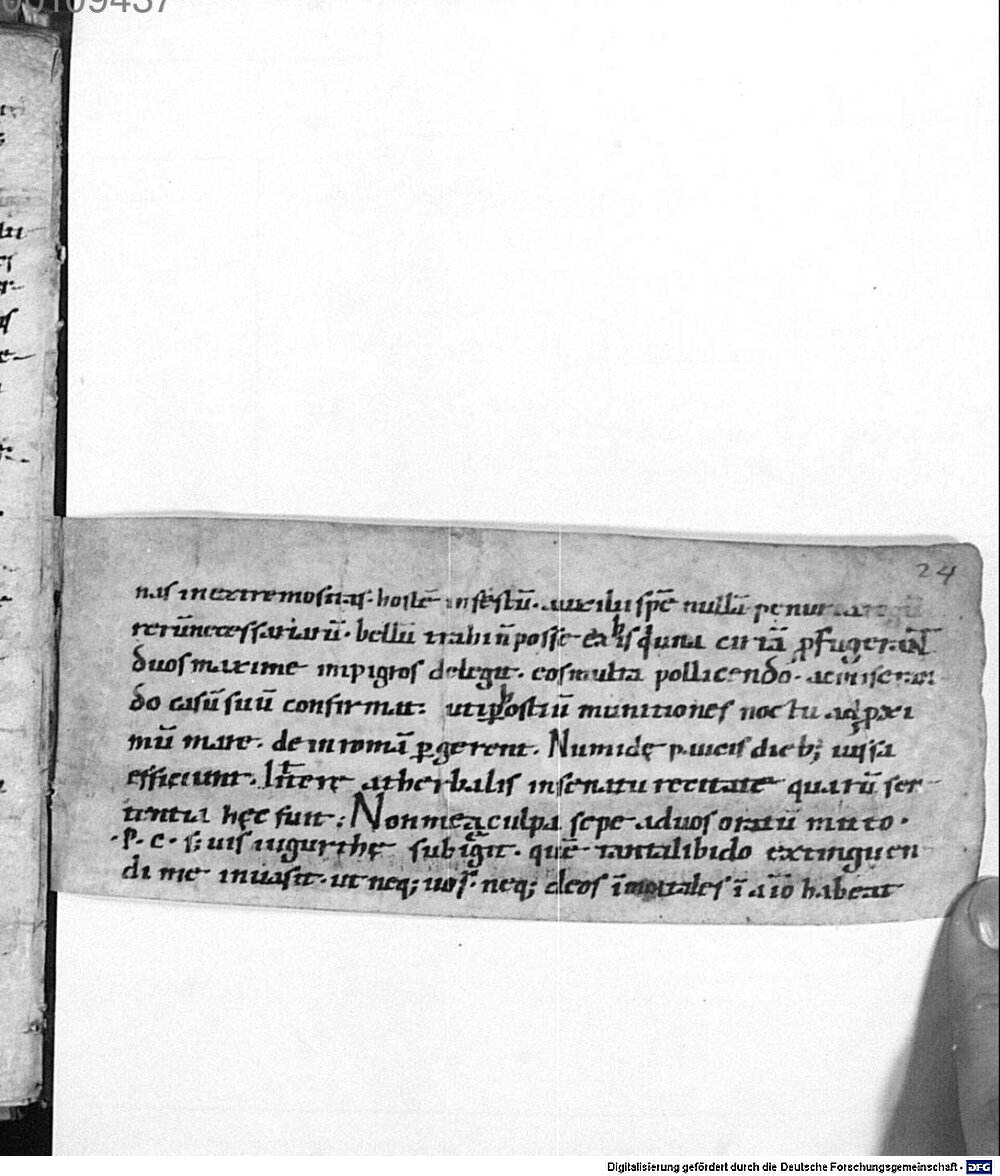 00109437
24
nas in extremo sitas· hostē infestū· auxilii spē nullā penuria
rerū necessariarū· bellū trahi ñ posse· ex his q̇ una cirtā ꝓfugerant
duos maxime impigros delegit· eos multa pollicendo·
do casū suū confirmat: uti p hostiū munitiones noctu ad ꝓxi
mū mare· dein romā pgerent· Numidę paucis dieb; iussa
efficiunt· litterę atherbalis in senatu recitate quarū sen
tentia hęc fuit; Non mea culpa sepe ad uos oratū mitto·
·P· c· s; uis iugurthę subigit· quē tanta libido extinguen
di me inuasit· ut neq; uos· neq; deos īmortales ī aīo habeat
Digitalisierung gefördert durch die Deutsche Forschungsgemeinschaft - DFG